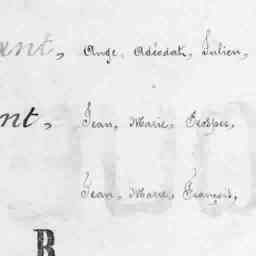 ant, Ange, Adéodat, Julien,
nt, Jean, Marie, Prosper,
Jean, Marie, François,
B